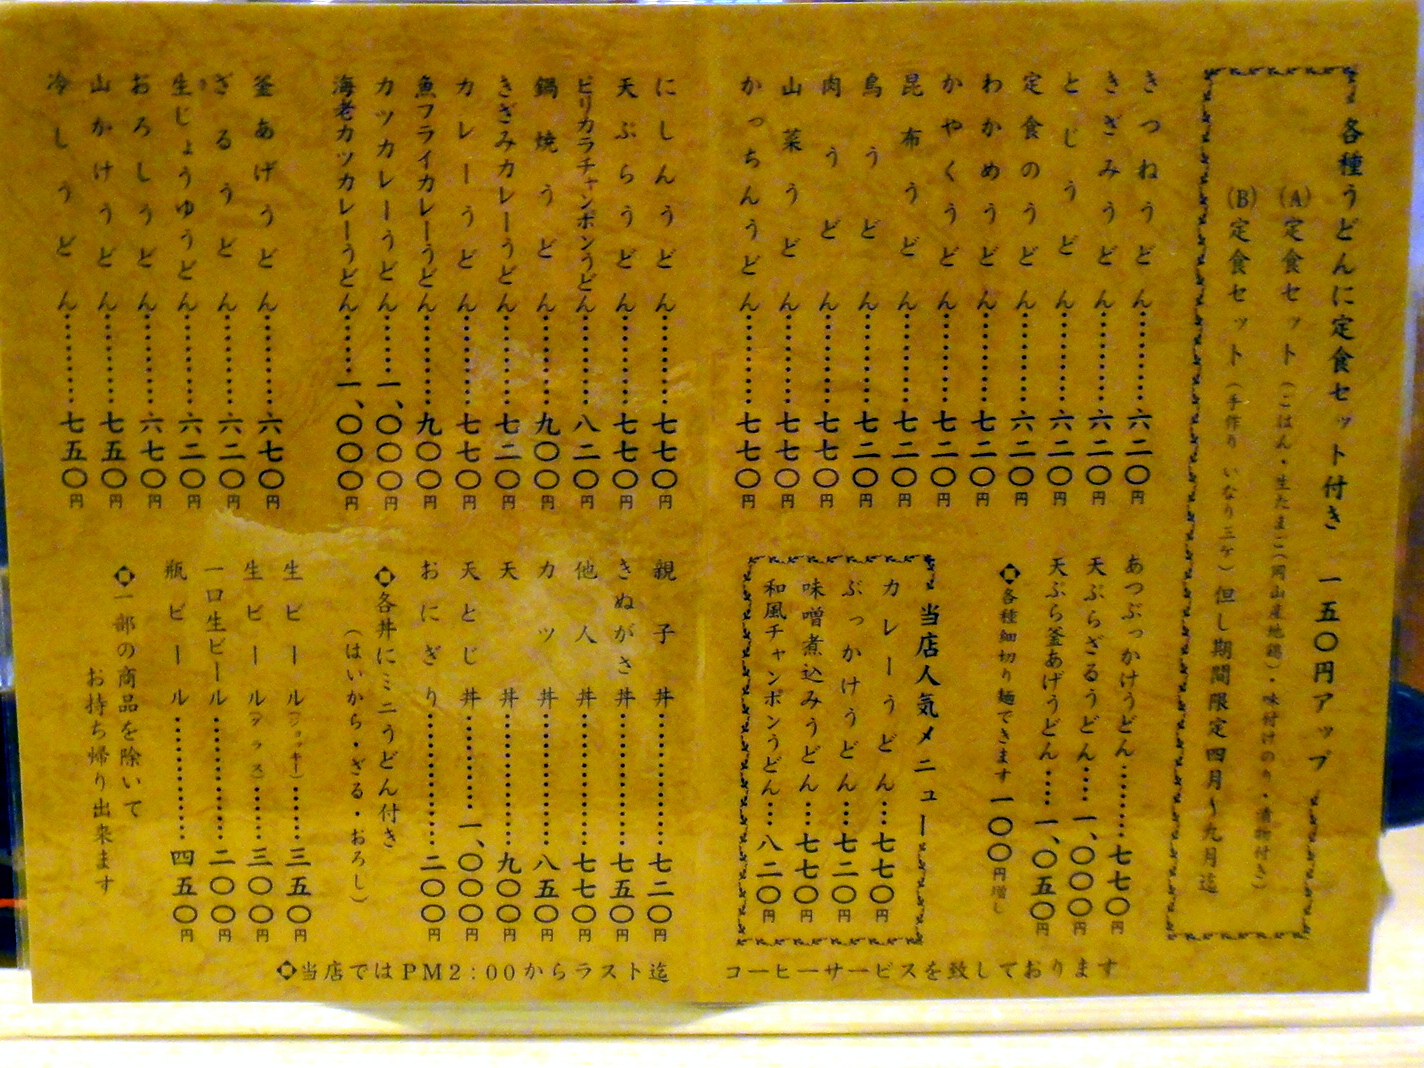 各種うどんに定食セット付き 一五〇円アップ
(A)定食セット(ごはん・生たまご(岡山産地鶏)・味付けのり・漬物付き)
(B)定食セット(手作り いなり三ケ)但し期間限定四月〜九月迄
きつねうどん…………六二〇円
きざみうどん…………六二〇円
とじうどん…………六二〇円
定食のうどん…………六二〇円
わかめうどん…………七二〇円
かやくうどん…………七二〇円
昆布うどん…………七二〇円
鳥うどん…………七二〇円
肉うどん…………七七〇円
山菜うどん…………七七〇円
かっちんうどん…………七七〇円
あつぶっかけうどん…………七七〇円
天ぷらざるうどん……一、〇〇〇円
天ぷら釜あげうどん……一、〇五〇円
各種細切り麺でできます 一〇〇円増し
当店人気メニュー
カレーうどん…七七〇円
ぶっかけうどん…七二〇円
味噌煮込みうどん…七七〇円
和風チャンポンうどん…八二〇円
にしんうどん…………七七〇円
天ぷらうどん…………七七〇円
ピリカラチャンポンうどん…………八二〇円
鍋焼うどん…………九〇〇円
きざみカレーうどん…………七二〇円
カレーうどん…………七七〇円
魚フライカレーうどん…………九〇〇円
カツカレーうどん………一、〇〇〇円
海老カツカレーうどん………一、〇〇〇円
釜あげうどん…………六七〇円
ざるうどん…………六二〇円
生じょうゆうどん…………六二〇円
おろしうどん…………六七〇円
山かけうどん…………七五〇円
冷しうどん…………七五〇円
親子丼………………七二〇円
きぬがさ丼………………七五〇円
他人丼………………七七〇円
カツ丼………………八五〇円
天丼………………九〇〇円
天とじ丼……………一、〇〇〇円
おにぎり………………二〇〇円
各丼にミニうどん付き
(はいから・ざる・おろし)
生ビール(ジョッキー)………三五〇円
生ビール(グラス)………三〇〇円
一口生ビール……………二〇〇円
瓶ビール……………四五〇円
一部の商品を除いて
お持ち帰り出来ます
当店ではPM2:00からラスト迄 コーヒーサービスを致しております